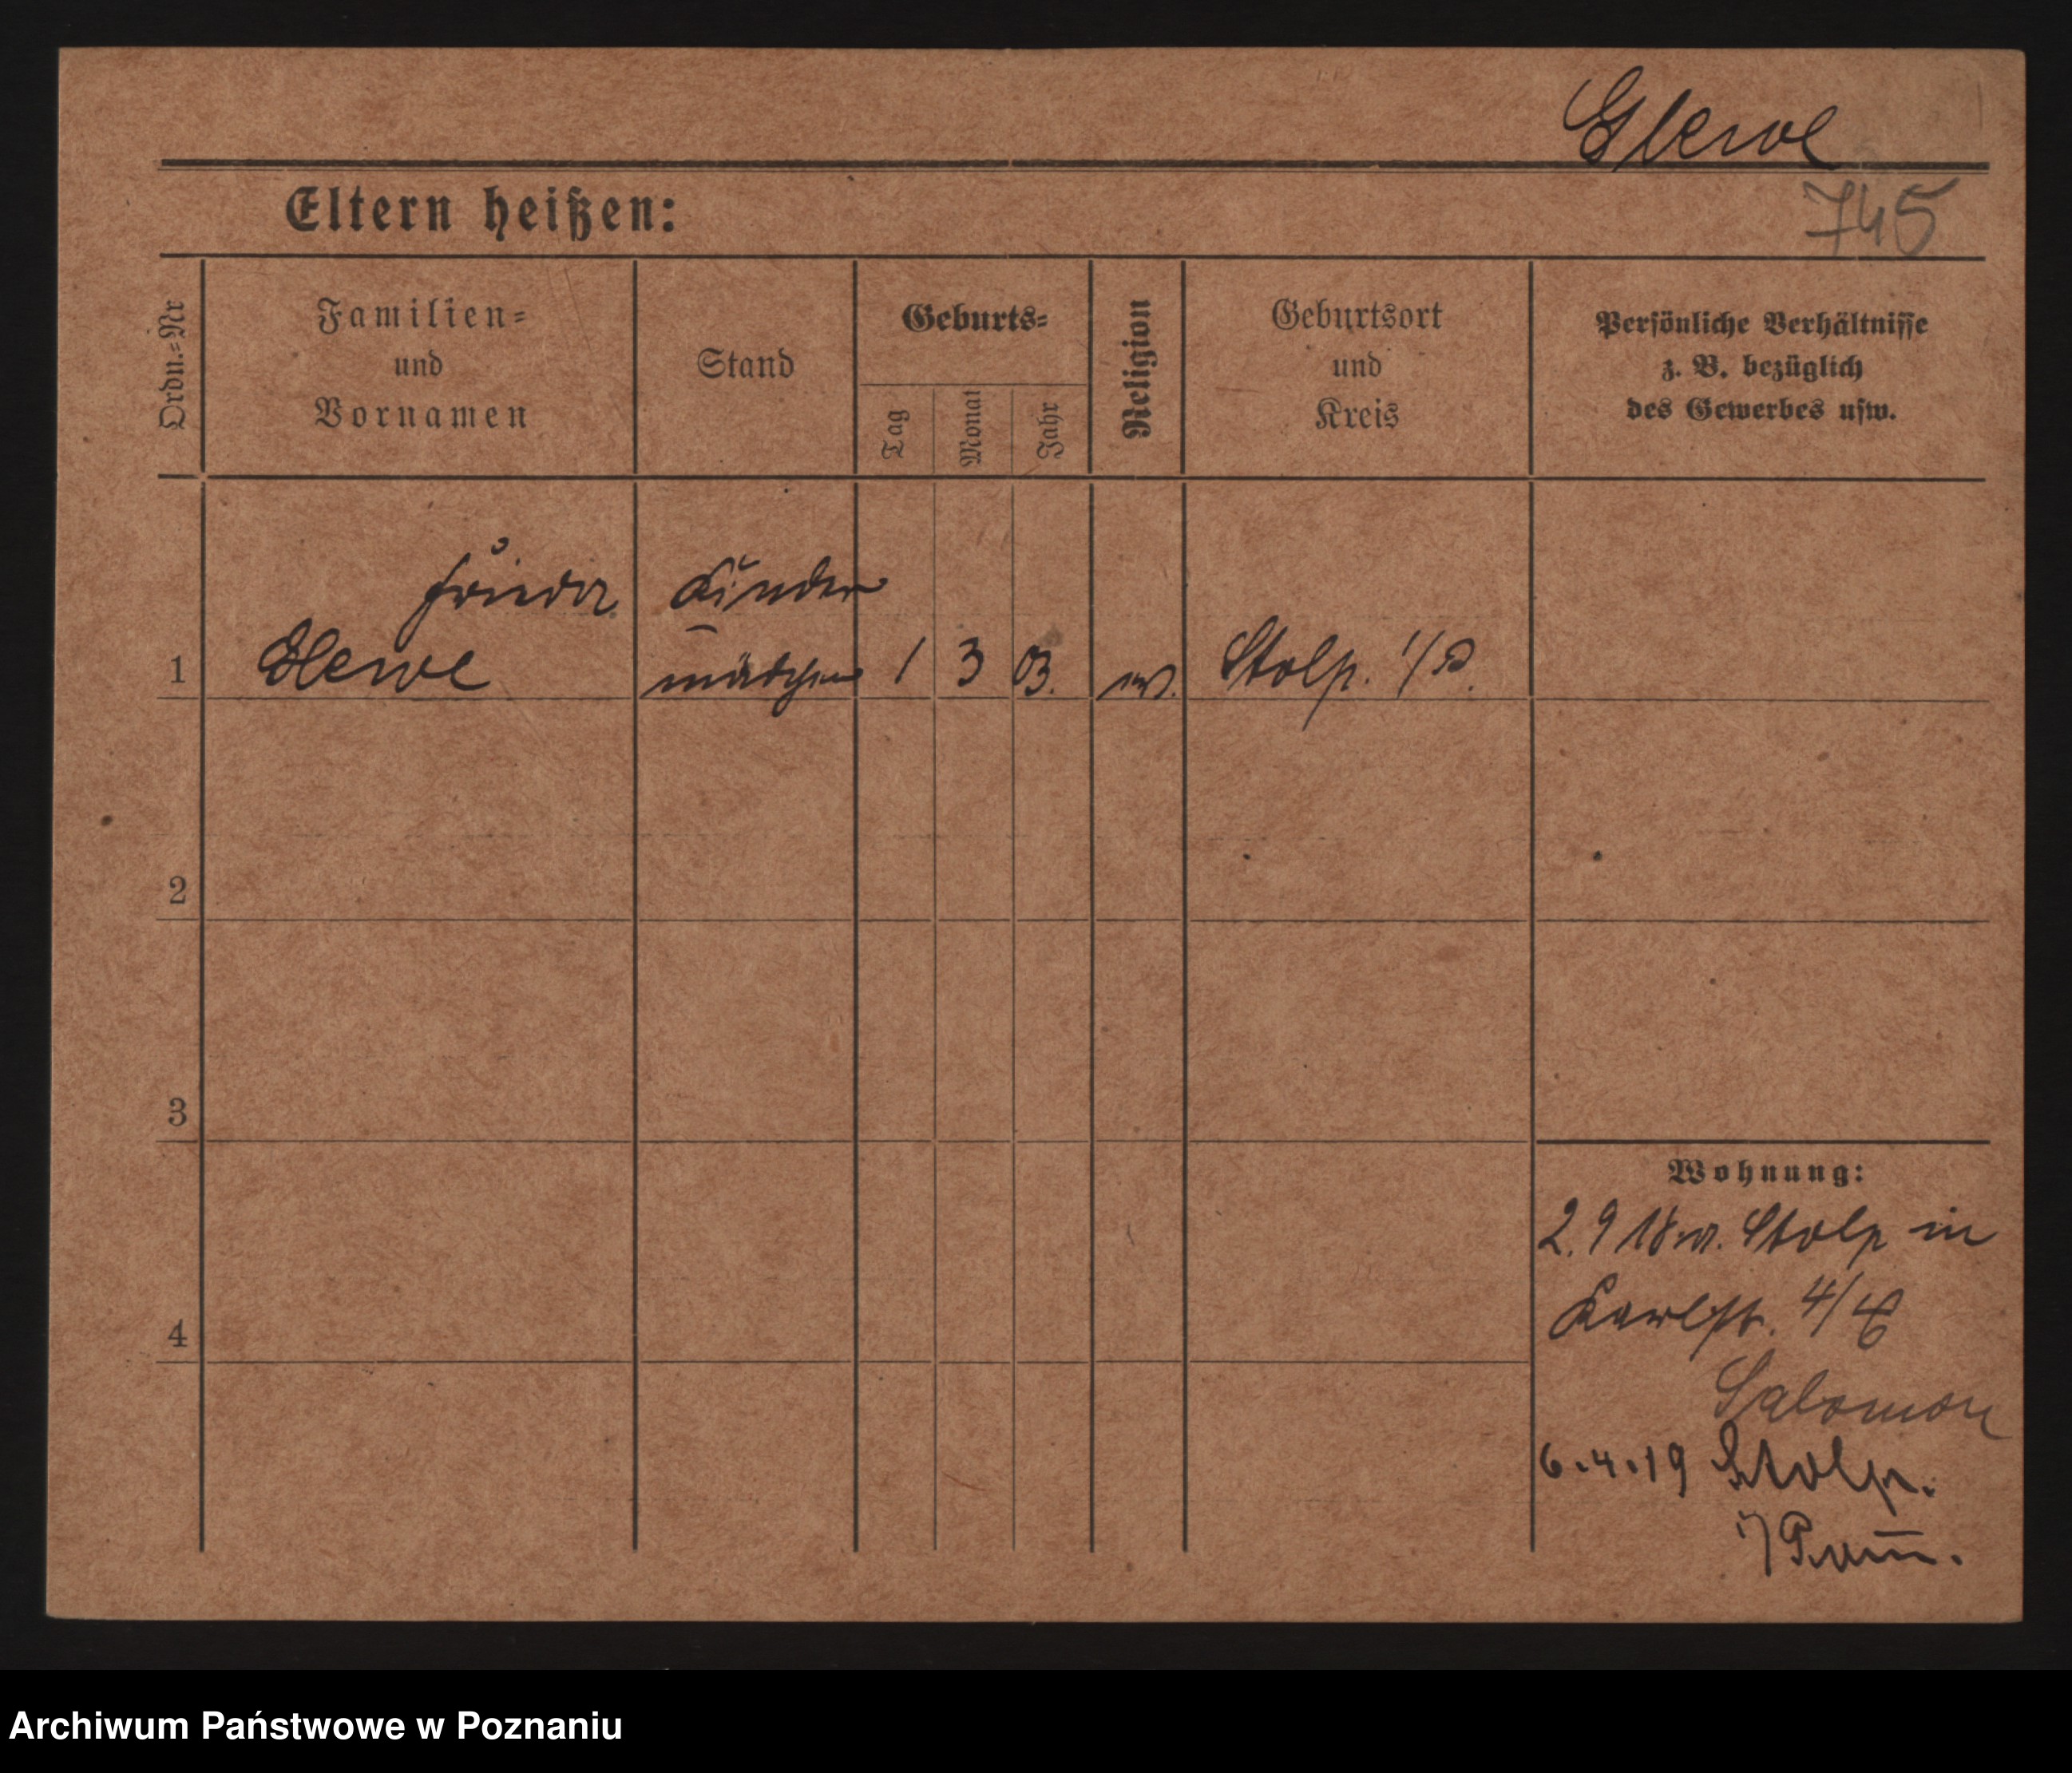 Glewe
745
Eltern heißen:
Ordn.-Nr
Familien-
und
Vornamen
Stand
Geburts-
Tag
Monat
Jahr
Religion
Geburtsort
und
Kreis
Persönliche Verhältnisse
z. B. bezüglich
des Gewerbes usw.
Frieda
Kinder
1
Glewe
mädchen
1
3
03.
ev.
Stolp.
2
3
4
Wohnung:
2.9 18 v. Stolp in
Karlstr. 4/
Salomon
6.4.19 Stolp.
i/Pom̄.
Archiwum Państwowe w Poznaniu